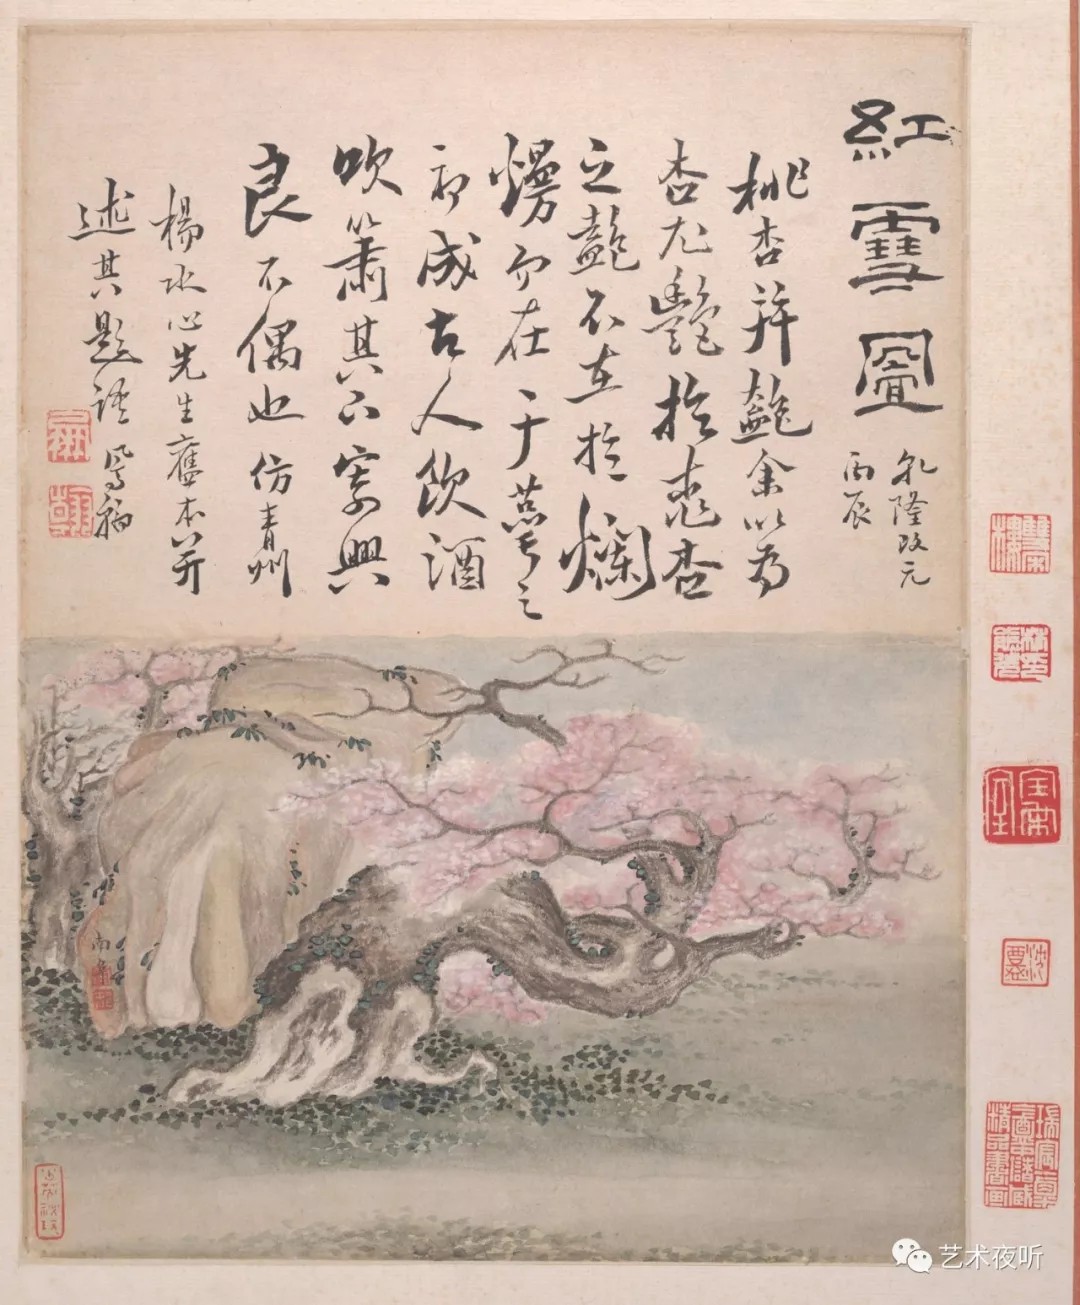 紅雪圖
乾隆改元
丙辰
桃杏并艷余以為
杏尤艷於桃杏
之艷不在於爛
熳而在于萼之
初成古人飲酒
吹簫其下寄興
良不偶也仿青州
楊水心先生舊本并
述其題語 鳳翰
南阜
艺术夜听